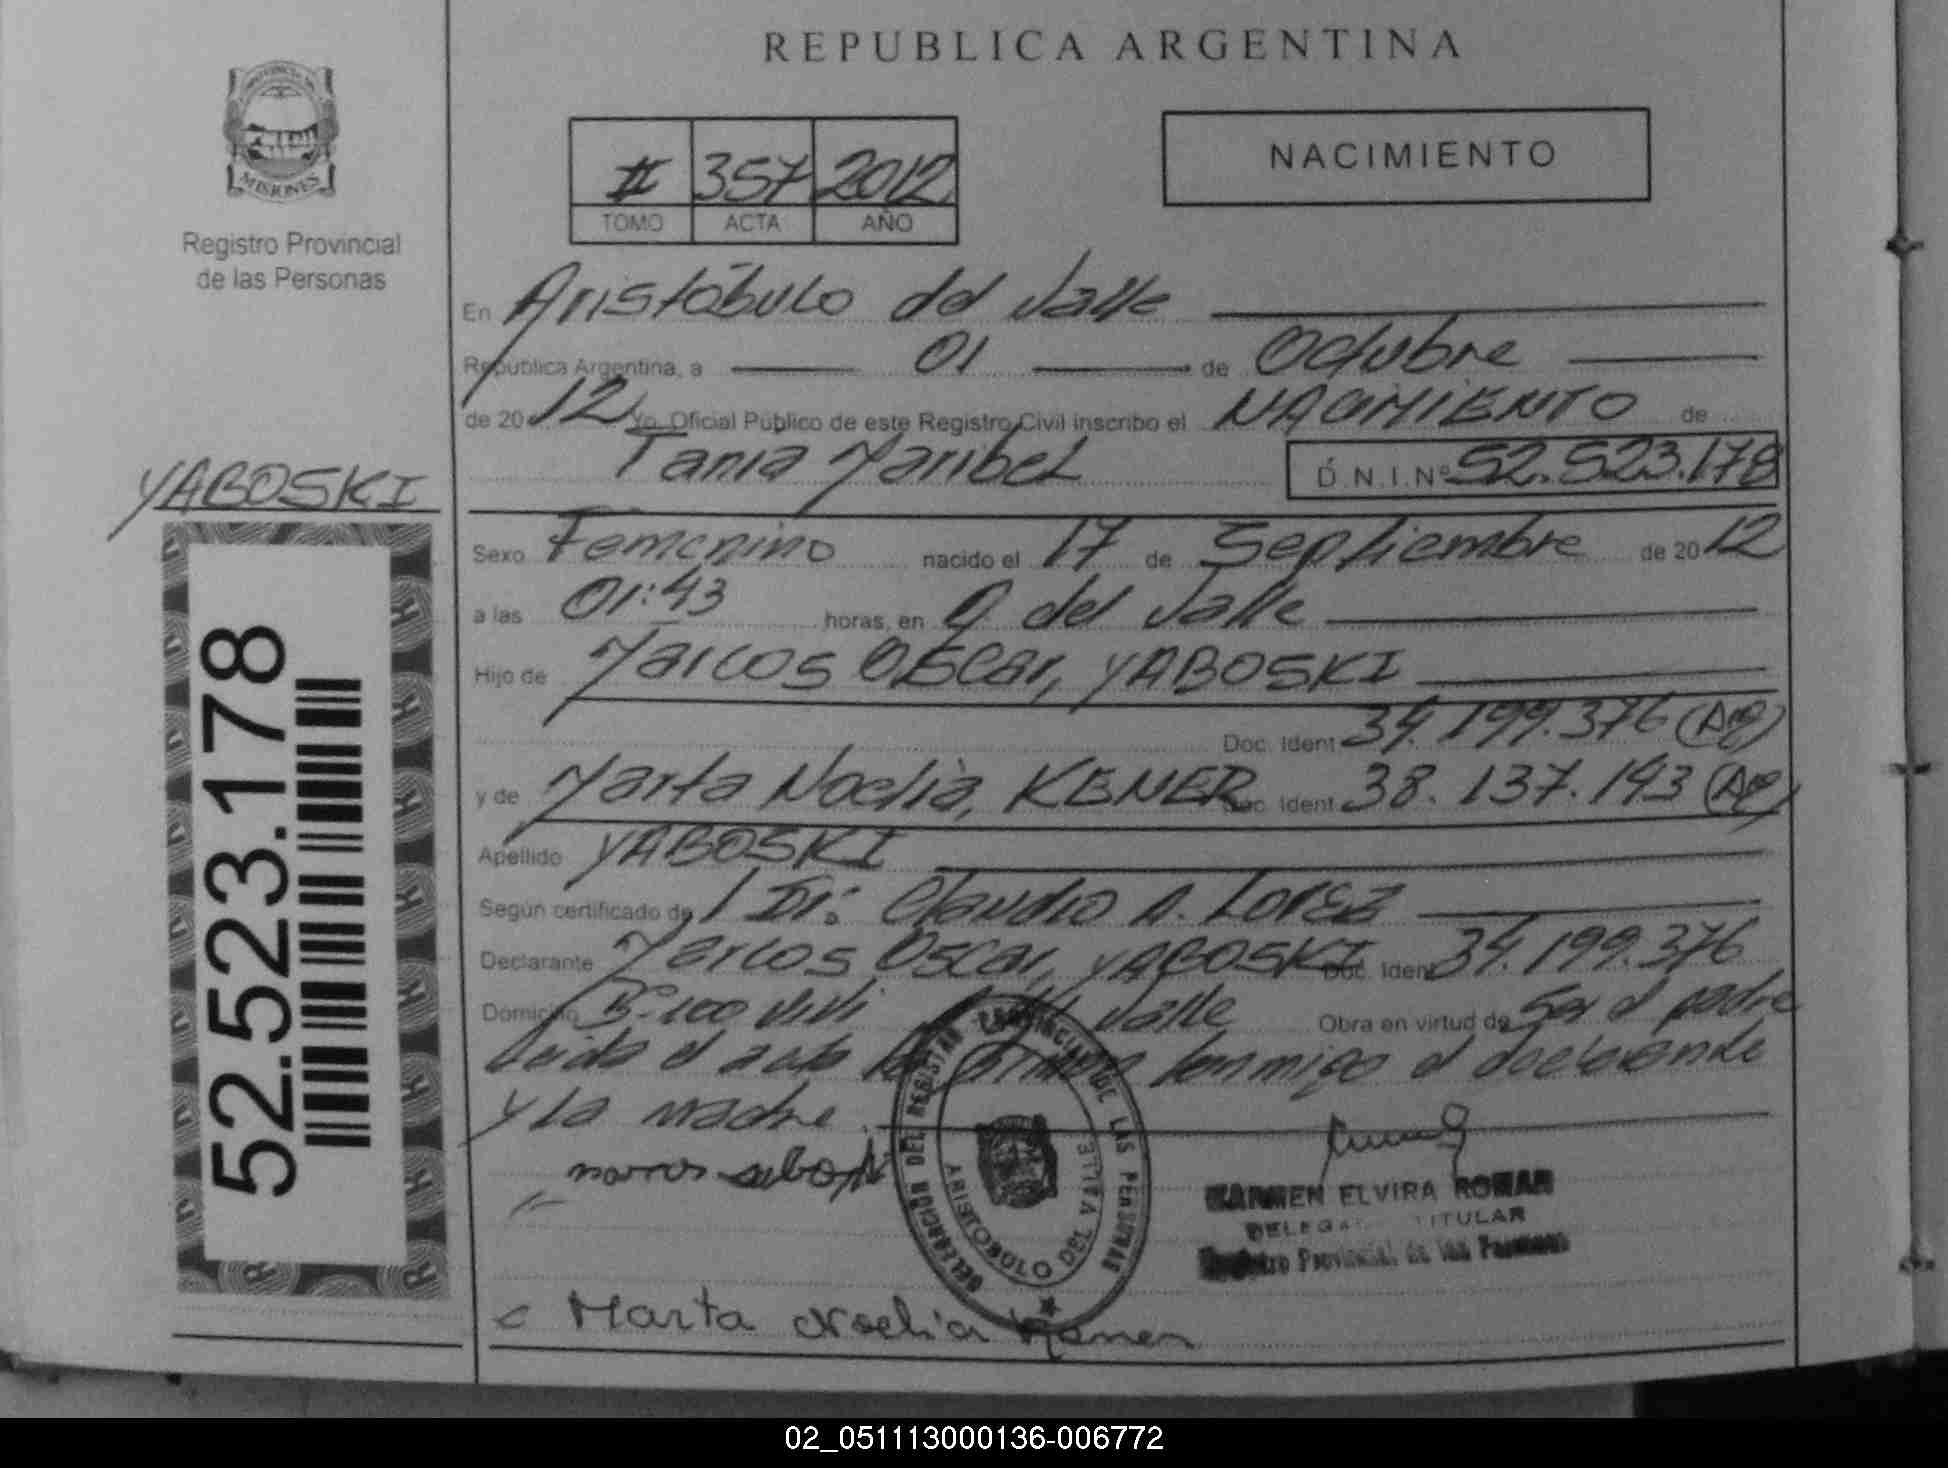 REPUBLICA ARGENTINA
PROVINCIA DE
MISIONES
Registro Provincial
de las Personas
II 357 2012
TOMO ACTA AÑO
NACIMIENTO
En Aristóbulo del Valle
República Argentina, a 01 de Octubre
de 20 12 Yo, Oficial Público de este Registro Civil inscribo el NACIMIENTO de
Tania Maribel D.N.I.Nº 52.523.178
YABOSKI
52.523.178
Sexo Femenino nacido el 17 de Septiembre de 2012
a las 01:43 horas, en A del Valle
Hijo de Marcos Oscar, YABOSKI
Doc. Ident 34.199.376 (Arg)
y de Marta Noelia, KENER Doc. Ident 38.137.143 (Arg)
Apellido YABOSKI
Según certificado de Dr: Claudio A. LOPEZ
Declarante Marcos Oscar, YABOSKI Doc. Ident 34.199.376
Domicilio Bº 100 Viv Valle Obra en virtud de Ser el padre
Leida el acta la firman conmigo el declarante
y la madre
DELEGACION DEL REGISTRO PROVINCIAL DE LAS PERSONAS
ARISTOBULO DEL VALLE
KARMEN ELVIRA ROMAN
DELEGADA TITULAR
Registro Provincial de las Personas
Marta Noelia Kener
02_051113000136-006772